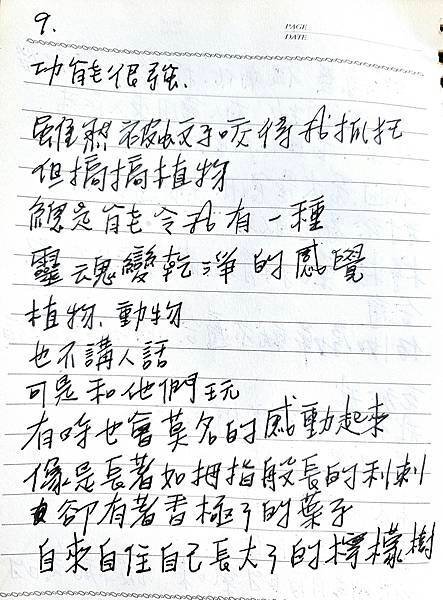 9.
PAGE
DATE
功能很強、
雖然被蚊子咬得我抓狂
但搞搞植物
總是能令我有一種
靈魂變乾淨的感覺
植物、動物
也不講人話
可是和他們玩
有時也會莫名的感動起來
像是長著如拇指般長的利刺
卻有著香極了的葉子
自來自住自己長大了的檸檬樹